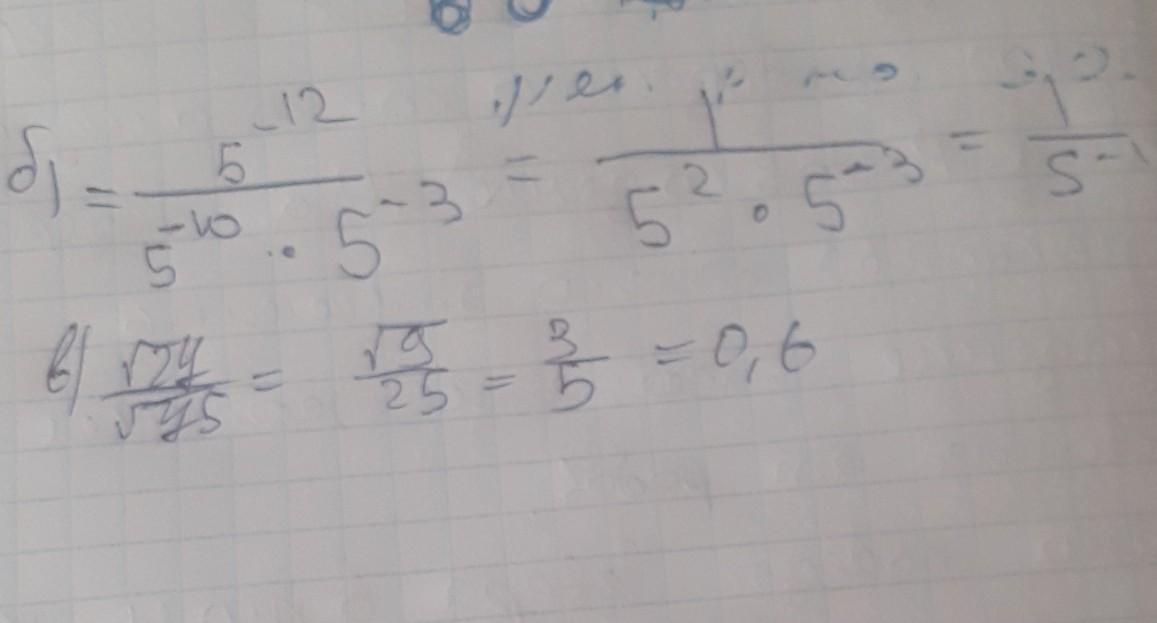 б) = 5^-12 / (5^-10 · 5^-3) = 1 / (5^2 · 5^-3) = 1 / 5^-1
в) √27 / √75 = √9 / 25 = 3 / 5 = 0,6